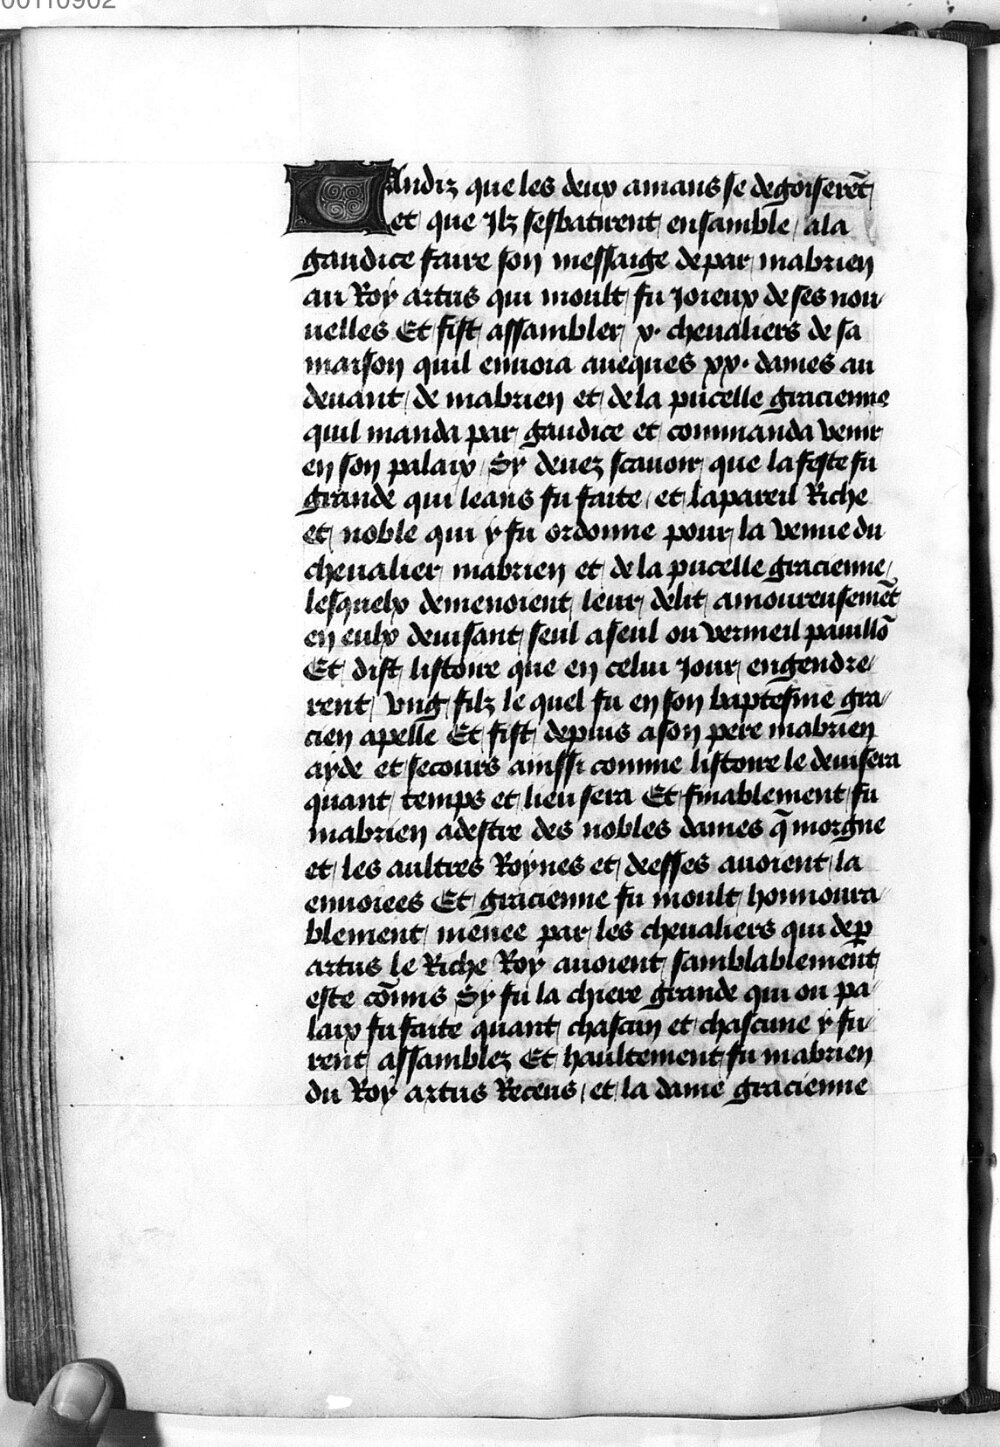 00110902
Tandiz que les deux amans se degoiserēt
et que Jlz sesbatirent ensamble / ala
gaudice faire son messaige depar mabrien
au Roy artus qui moult fu Joieux de ses nou/
uelles Et fist assambler x. cheualiers de sa
maison quil enuoia aueques xx. dames au
deuant de mabrien et dela pucelle gracienne
quil manda par gaudice et commanda venir
en son palaix / Sy deuez scauoir que la feste fu
grande qui leans fu faite / et lapareil Riche
et noble qui y fu ordonne pour la venue du
cheualier mabrien et dela pucelle gracienne /
lesquelx demenoient leur delit amoureusemēt
en eulx deuisant seul a seul ou vermeil pauillō
Et dist listoire que en celui Jour engendre/
rent vng filz le quel fu en son baptesme gra/
cien apelle Et fist depuis a son pere mabrien
ayde et secours ainssi comme listoire le deuisera
quant temps et lieu sera Et finablement fu
mabrien adestre des nobles dames q̄ morgne
et les aultres Roynes et deesses auoient la
enuoiees Et gracienne fu moult honnoura/
blement menee par les cheualiers qui dep̄
artus le Riche Roy auoient samblablement
este cōmis Sy fu la chiere grande qui ou pa/
laix fu faite quant chascun et chascune y fu/
rent assamblez Et haultement fu mabrien
du Roy artus Receus / et la dame gracienne